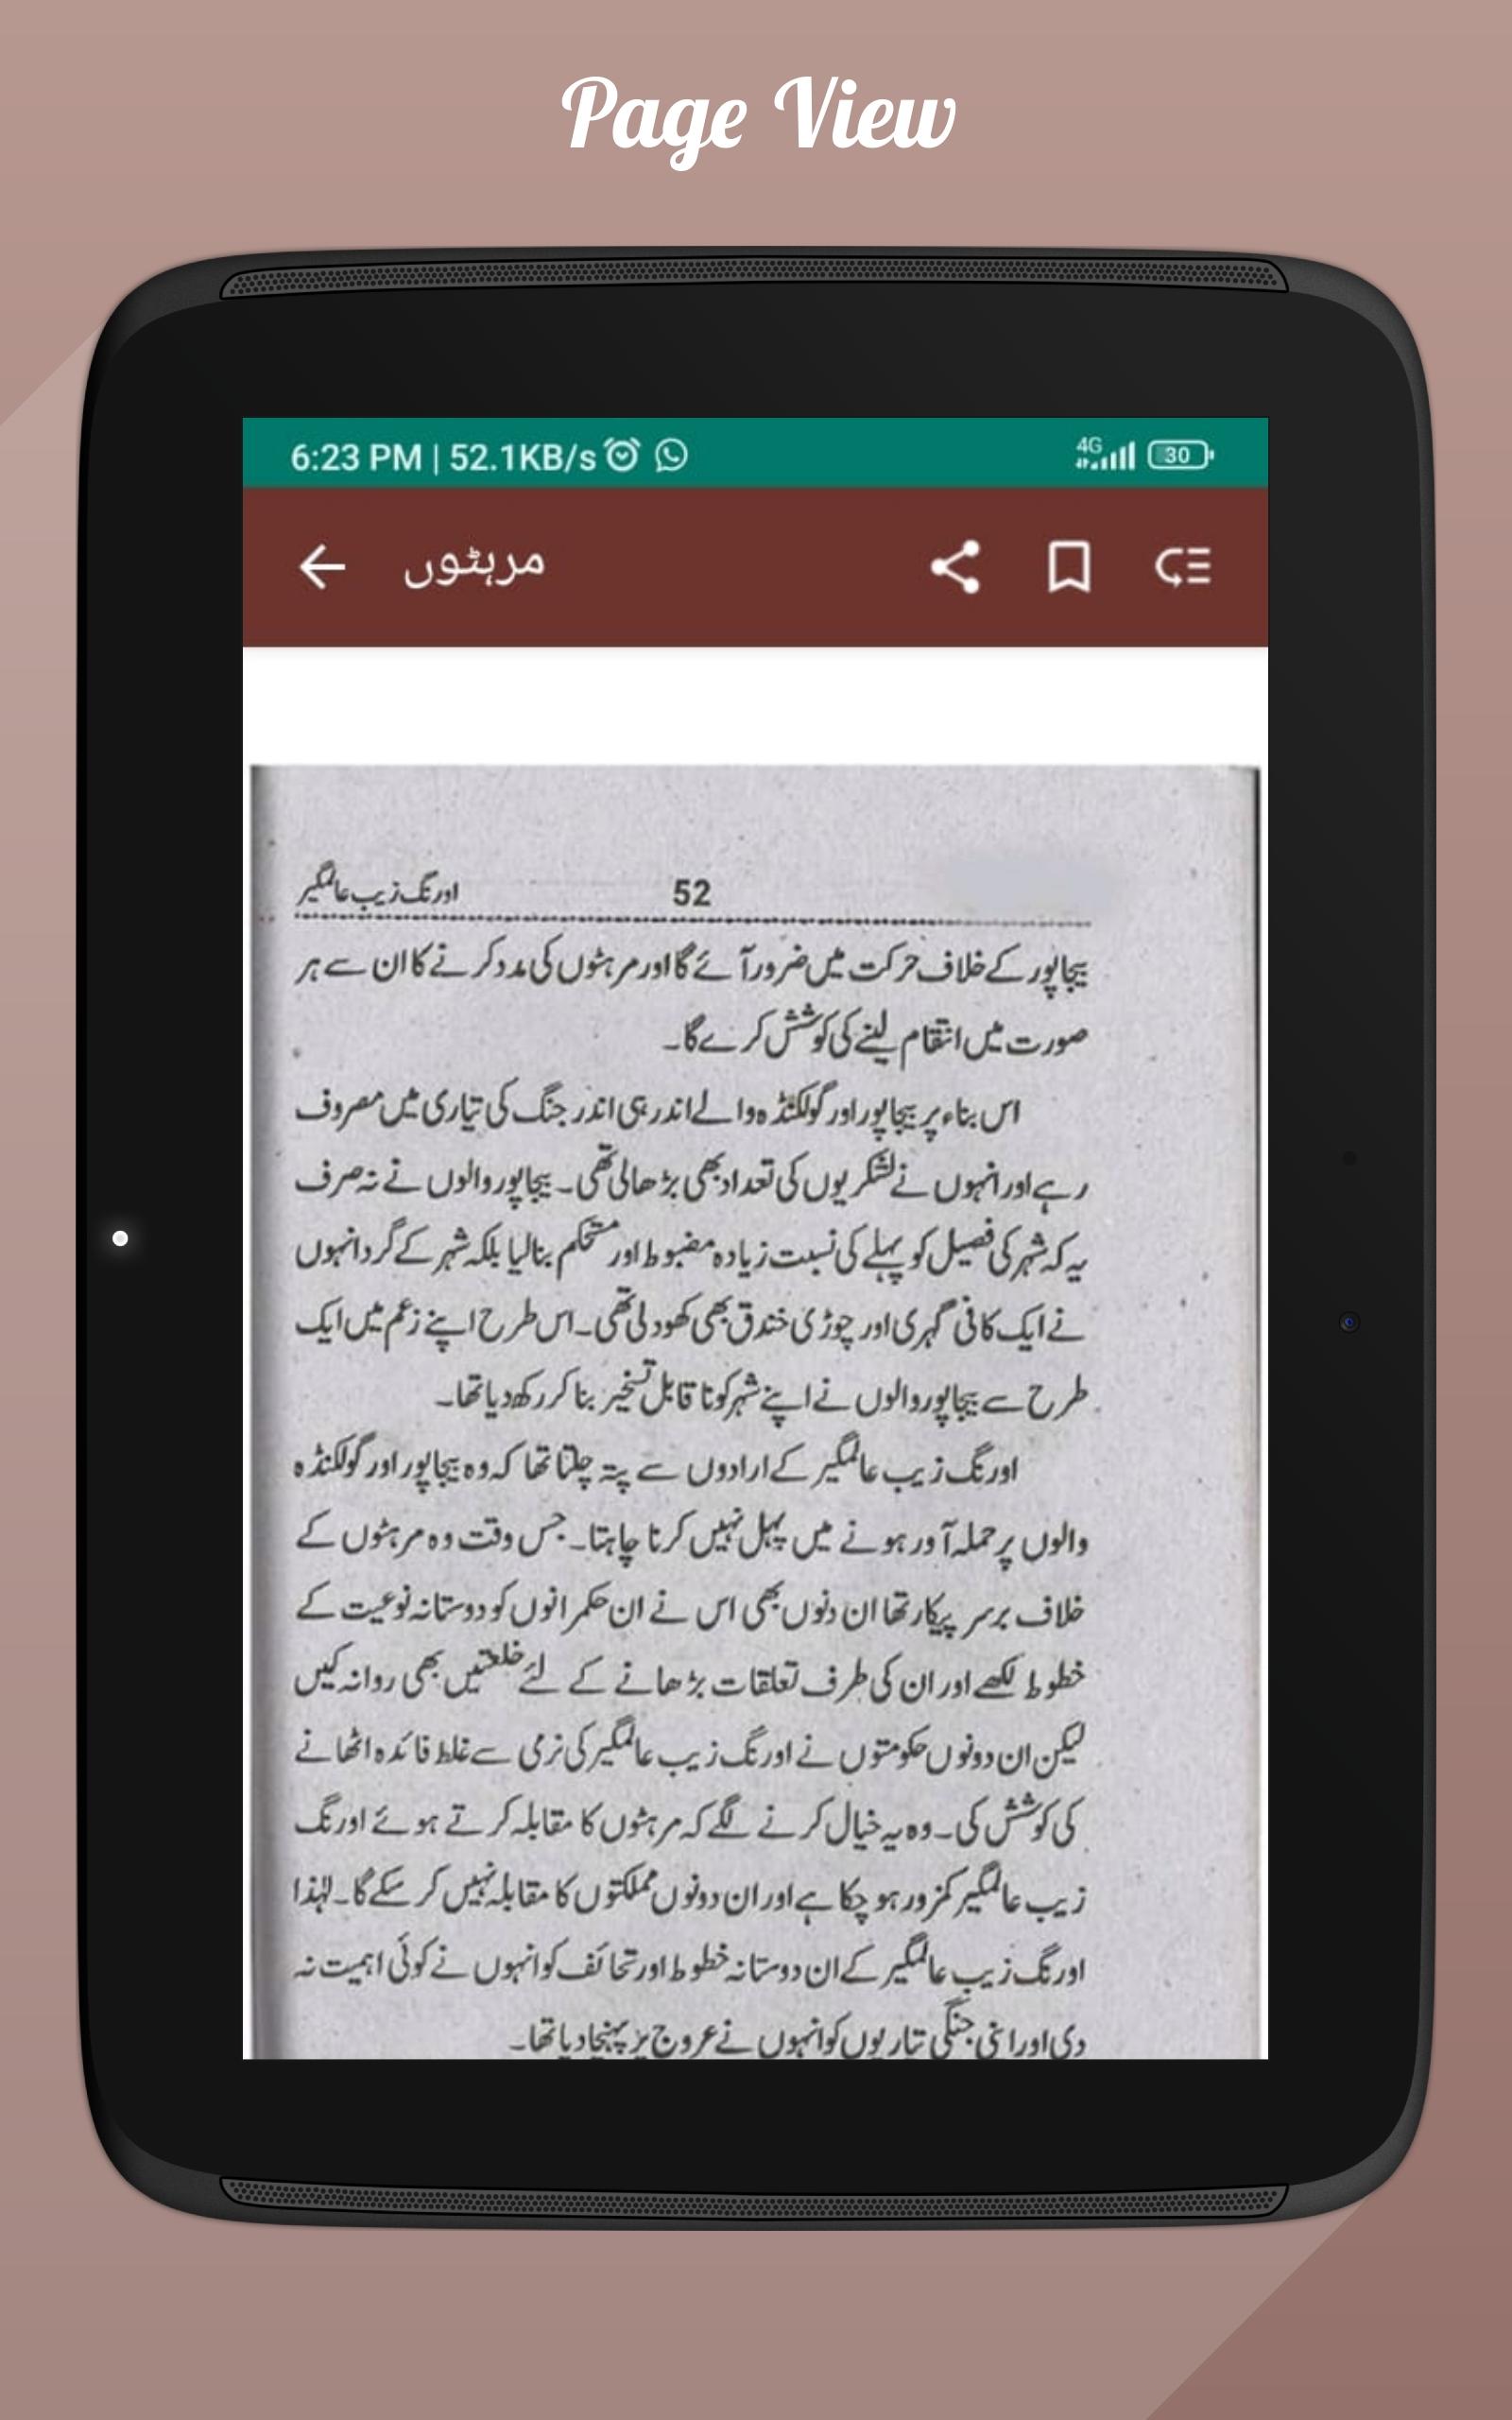 Page View
6:23 PM | 52.1KB/s
4G
30
مرہٹوں
اورنگ زیب عالمگیر
52
بیجاپور کے خلاف حرکت میں ضرور آئے گا اور مرہٹوں کی مدد کرنے کا ان سے ہر
صورت میں انتقام لینے کی کوشش کرے گا۔
اس بناء پر بیجاپور اور گولکنڈہ والے اندر ہی اندر جنگ کی تیاری میں مصروف
رہے اور انہوں نے لشکریوں کی تعداد بھی بڑھا لی تھی۔ بیجاپور والوں نے نہ صرف
یہ کہ شہر کی فصیل کو پہلے کی نسبت زیادہ مضبوط اور مستحکم بنا لیا بلکہ شہر کے گرد انہوں
نے ایک کافی گہری اور چوڑی خندق بھی کھود لی تھی۔ اس طرح اپنے زعم میں ایک
طرح سے بیجاپور والوں نے اپنے شہر کو نا قابل تسخیر بنا کر رکھ دیا تھا۔
اورنگ زیب عالمگیر کے ارادوں سے پتہ چلتا تھا کہ وہ بیجاپور اور گولکنڈہ
والوں پر حملہ آور ہونے میں پہل نہیں کرنا چاہتا۔ جس وقت وہ مرہٹوں کے
خلاف برسر پیکار تھا ان دنوں بھی اس نے ان حکمرانوں کو دوستانہ نوعیت کے
خطوط لکھے اور ان کی طرف تعلقات بڑھانے کے لئے خلعتیں بھی روانہ کیں
لیکن ان دونوں حکومتوں نے اورنگ زیب عالمگیر کی نرمی سے غلط فائدہ اٹھانے
کی کوشش کی۔ وہ یہ خیال کرنے لگے کہ مرہٹوں کا مقابلہ کرتے ہوئے اورنگ
زیب عالمگیر کمزور ہو چکا ہے اور ان دونوں مملکتوں کا مقابلہ نہیں کر سکے گا۔ لہٰذا
اورنگ زیب عالمگیر کے ان دوستانہ خطوط اور تحائف کو انہوں نے کوئی اہمیت نہ
دی اور اپنی جنگی تیاریوں کو انہوں نے عروج پر پہنچا دیا تھا۔